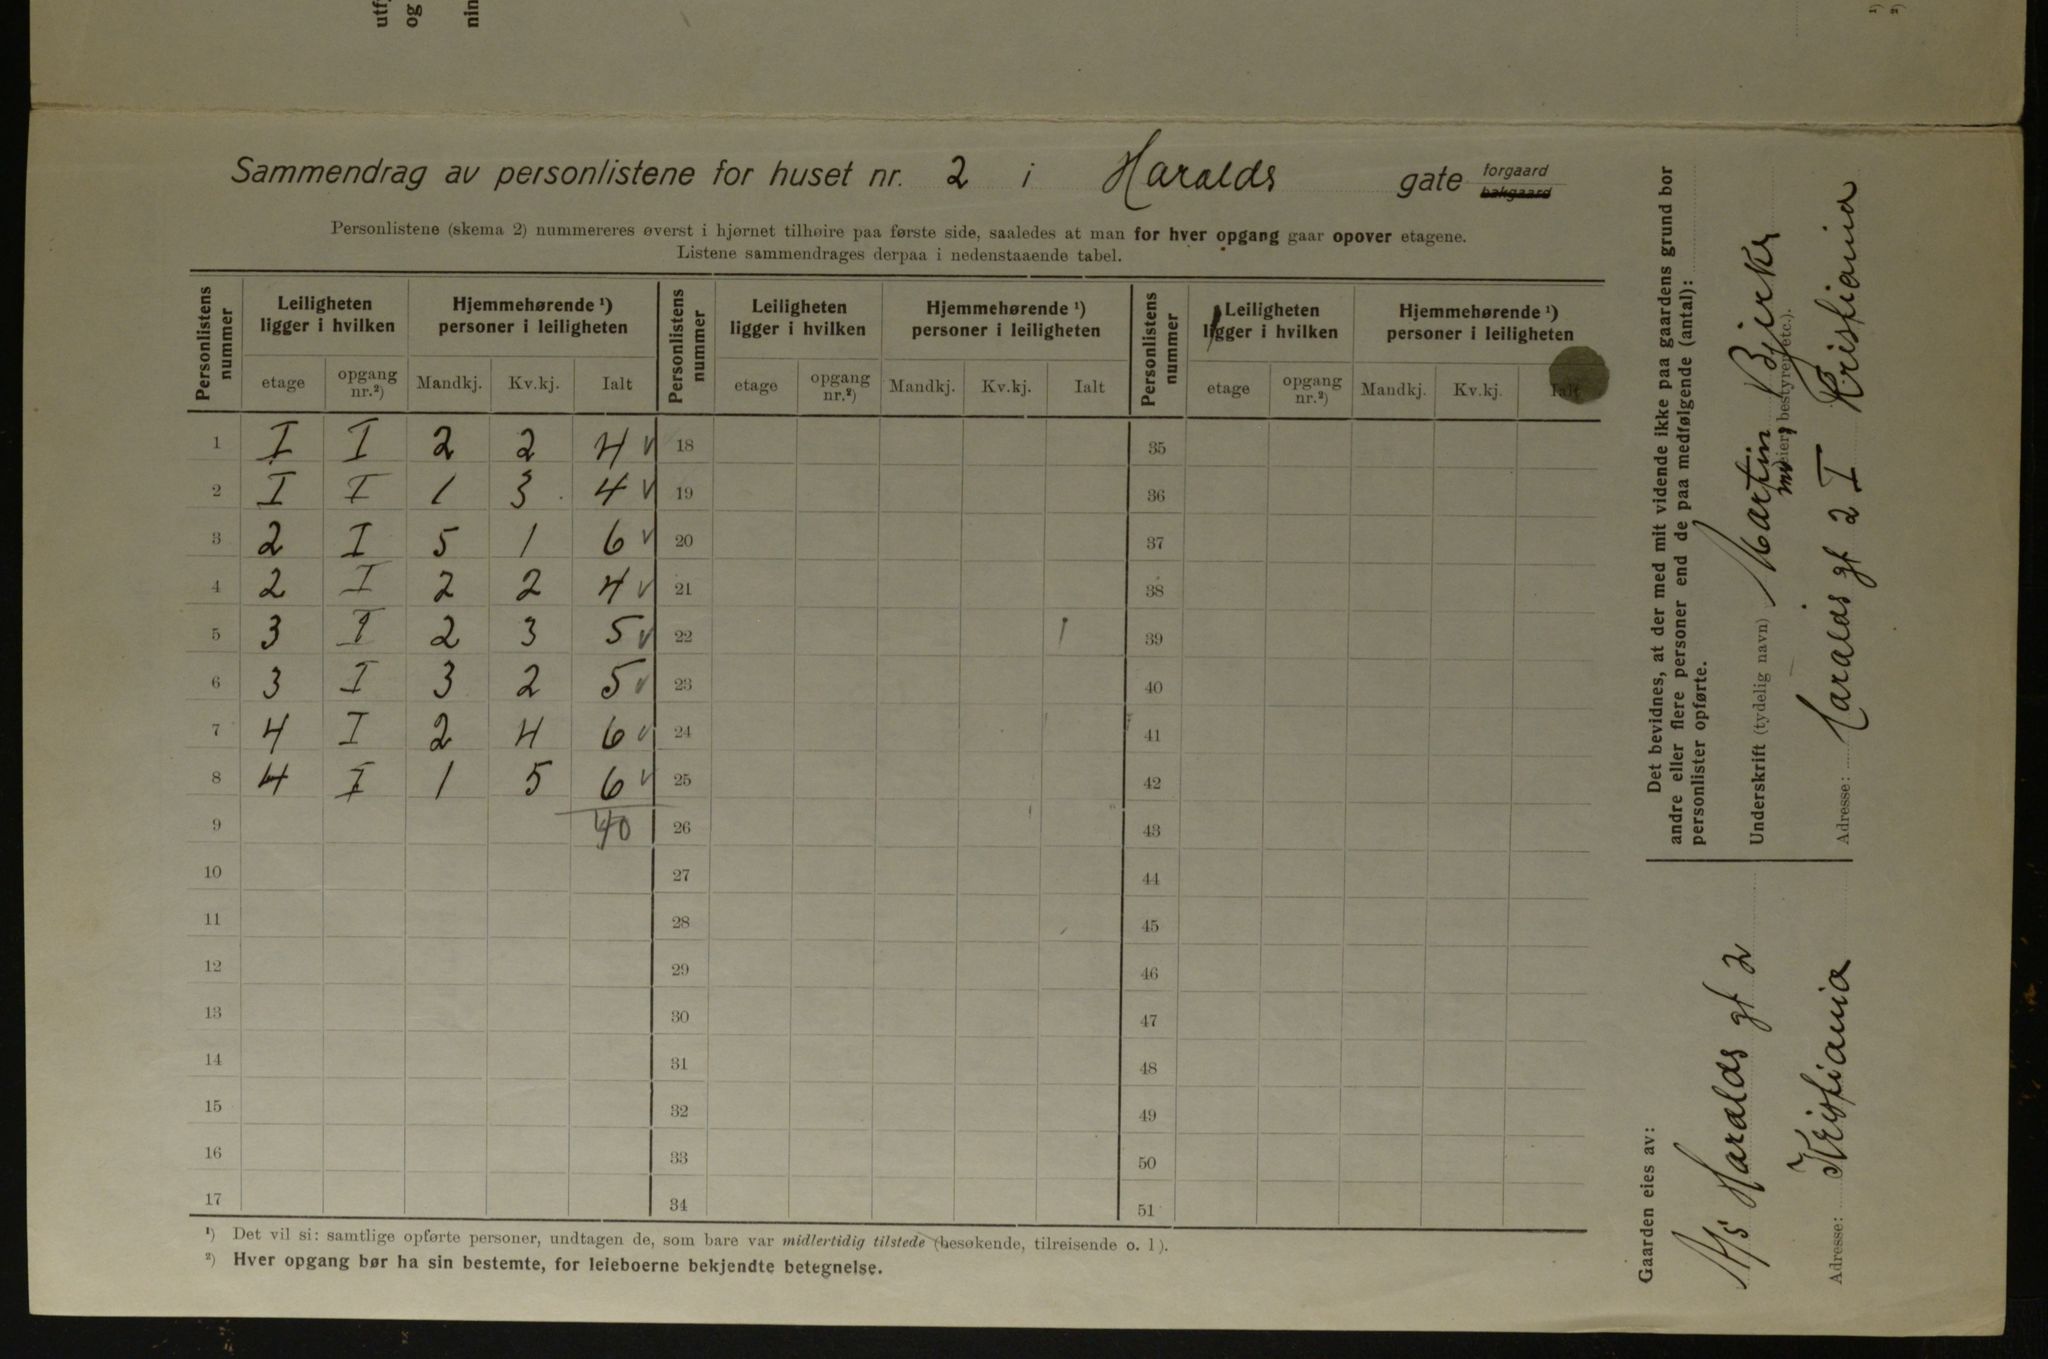 Sammendrag av personlistene for huset nr. 2 i Haralds gate forgaard bakgaard
Personlistene (skema 2) nummereres øverst i hjørnet tilhøire paa første side, saaledes at man for hver opgang gaar opover etagene.
Listene sammendrages derpaa i nedenstaaende tabel.
Personlistens nummer Leiligheten ligger i hvilken Hjemmehørende ¹) personer i leiligheten Personlistens nummer Leiligheten ligger i hvilken Hjemmehørende ¹) personer i leiligheten Personlistens nummer Leiligheten ligger i hvilken Hjemmehørende ¹) personer i leiligheten
etage opgang nr.²) Mandkj. Kv.kj. Ialt etage opgang nr.²) Mandkj. Kv.kj. Ialt etage opgang nr.²) Mandkj. Kv.kj. Ialt
1 I I 2 2 4 18 35
2 I I 1 3 4 19 36
3 2 I 5 1 6 20 37
4 2 I 2 2 4 21 38
5 3 I 2 3 5 22 39
6 3 I 3 2 5 23 40
7 4 I 2 4 6 24 41
8 4 I 1 5 6 25 42
9 40 26 43
10 27 44
11 28 45
12 29 46
13 30 47
14 31 48
15 32 49
16 33 50
17 34 51
¹) Det vil si: samtlige opførte personer, undtagen de, som bare var midlertidig tilstede (besøkende, tilreisende o. l).
²) Hver opgang bør ha sin bestemte, for leieboerne bekjendte betegnelse.
Gaarden eies av:
A/S Haralds gt 2
Adresse: Kristiania
Det bevidnes, at der med mit vidende ikke paa gaardens grund bor
andre eller flere personer end de paa medfølgende (antal):
personlister opførte.
Underskrift (tydelig navn) Martin Bjerke
(eier, bestyrer etc.).
Adresse: Haralds gt 2 I Kristiania